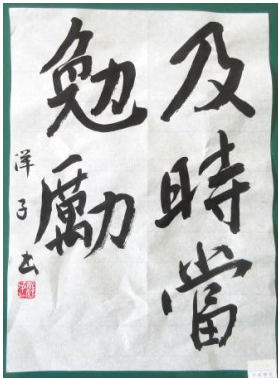 及時當
勉勵
洋子書